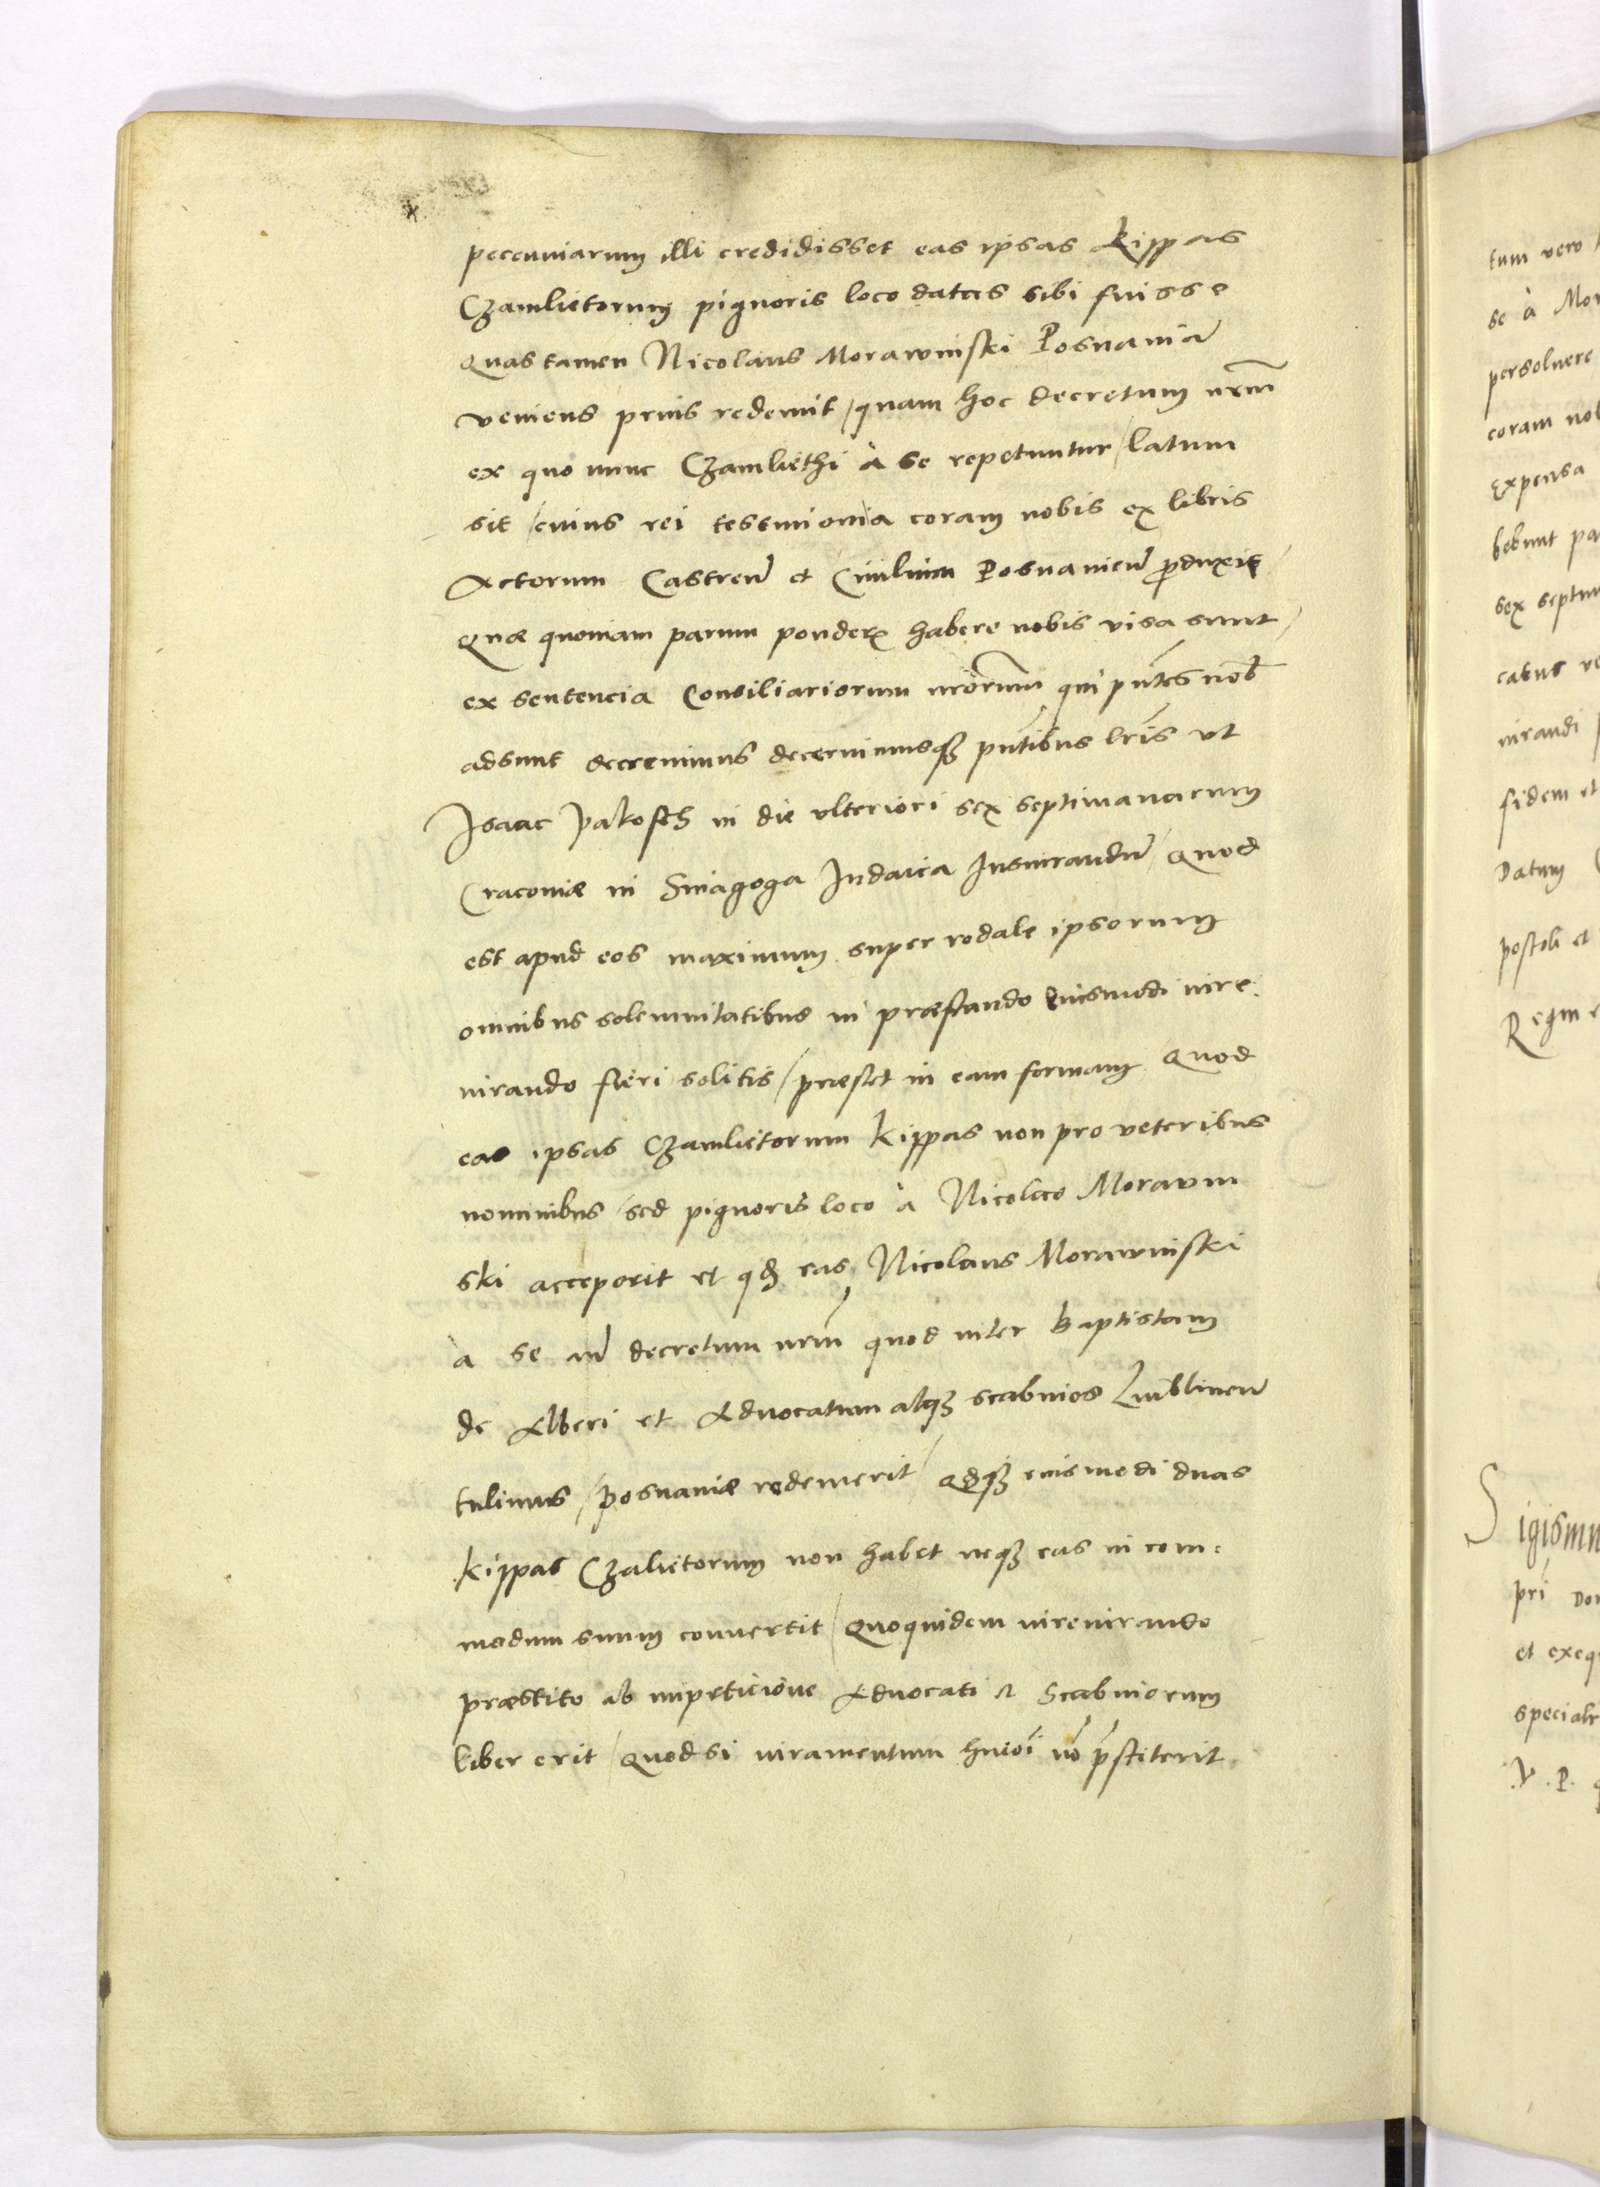 pecuniarum illi credidisset eas ipsas Kippas
Czamlietorum pignoris loco datas sibi fuisse
quas tamen Nicolaus Morawinski Posnaniā
veniens prius redemit / quam hoc decretum nr̄m
ex quo nunc Czamliethi à se repetuntur / latum
sit / cuius rei testimonia coram nobis ex libris
Actorum Castreñ et Ciuilium Posnanieñ ꝓduxit /
Quæ quoniam parum ponderꝫ habere nobis visa sunt /
ex sentencia Consiliariorum nr̄orum qui pñtes nob̃
adsunt decreuimus decernimusqꝫ pñtibus lr̄is vt
Isaac Jakosch in die vlteriori sex septimanarum
Cracouiæ in Sinagoga Iudaica Iusiurandū / quod
est apud eos maximum super rodale ipsorum
omnibus solemnitatibus in præstando eiusmodi iure
iurando fieri solitis / præstet in eam formam quod
eas ipsas Czamlietorum kippas non pro veteribus
nominibus / sed pignoris loco à Nicolao Morawin
ski acceperit et qđ eas Nicolaus Morawinski
a se añ decretum nr̄m quod inter Baptistam
de Alberi et Aduocatum atqꝫ scabinos Lublineñ
tulimus / Posnaniæ redemerit / qđqꝫ eiusmodi duas
kippas Czalietorum non habet neqꝫ eas in com-
modum suum conuertit / Quoquidem iureiurando
præstito ab impeticione Aduocati et Scabinorum
liber erit / Quod si iuramentum huiōi nō p̄stiterit
tum vero
se à Mor
persoluere
coram nob
Expensa
bebunt pa
sex septim
catus
iurandi
fidem et
Datum
postoli et
Regni
Sigismu
pri Dom
et exeq
speciali
.V.P.